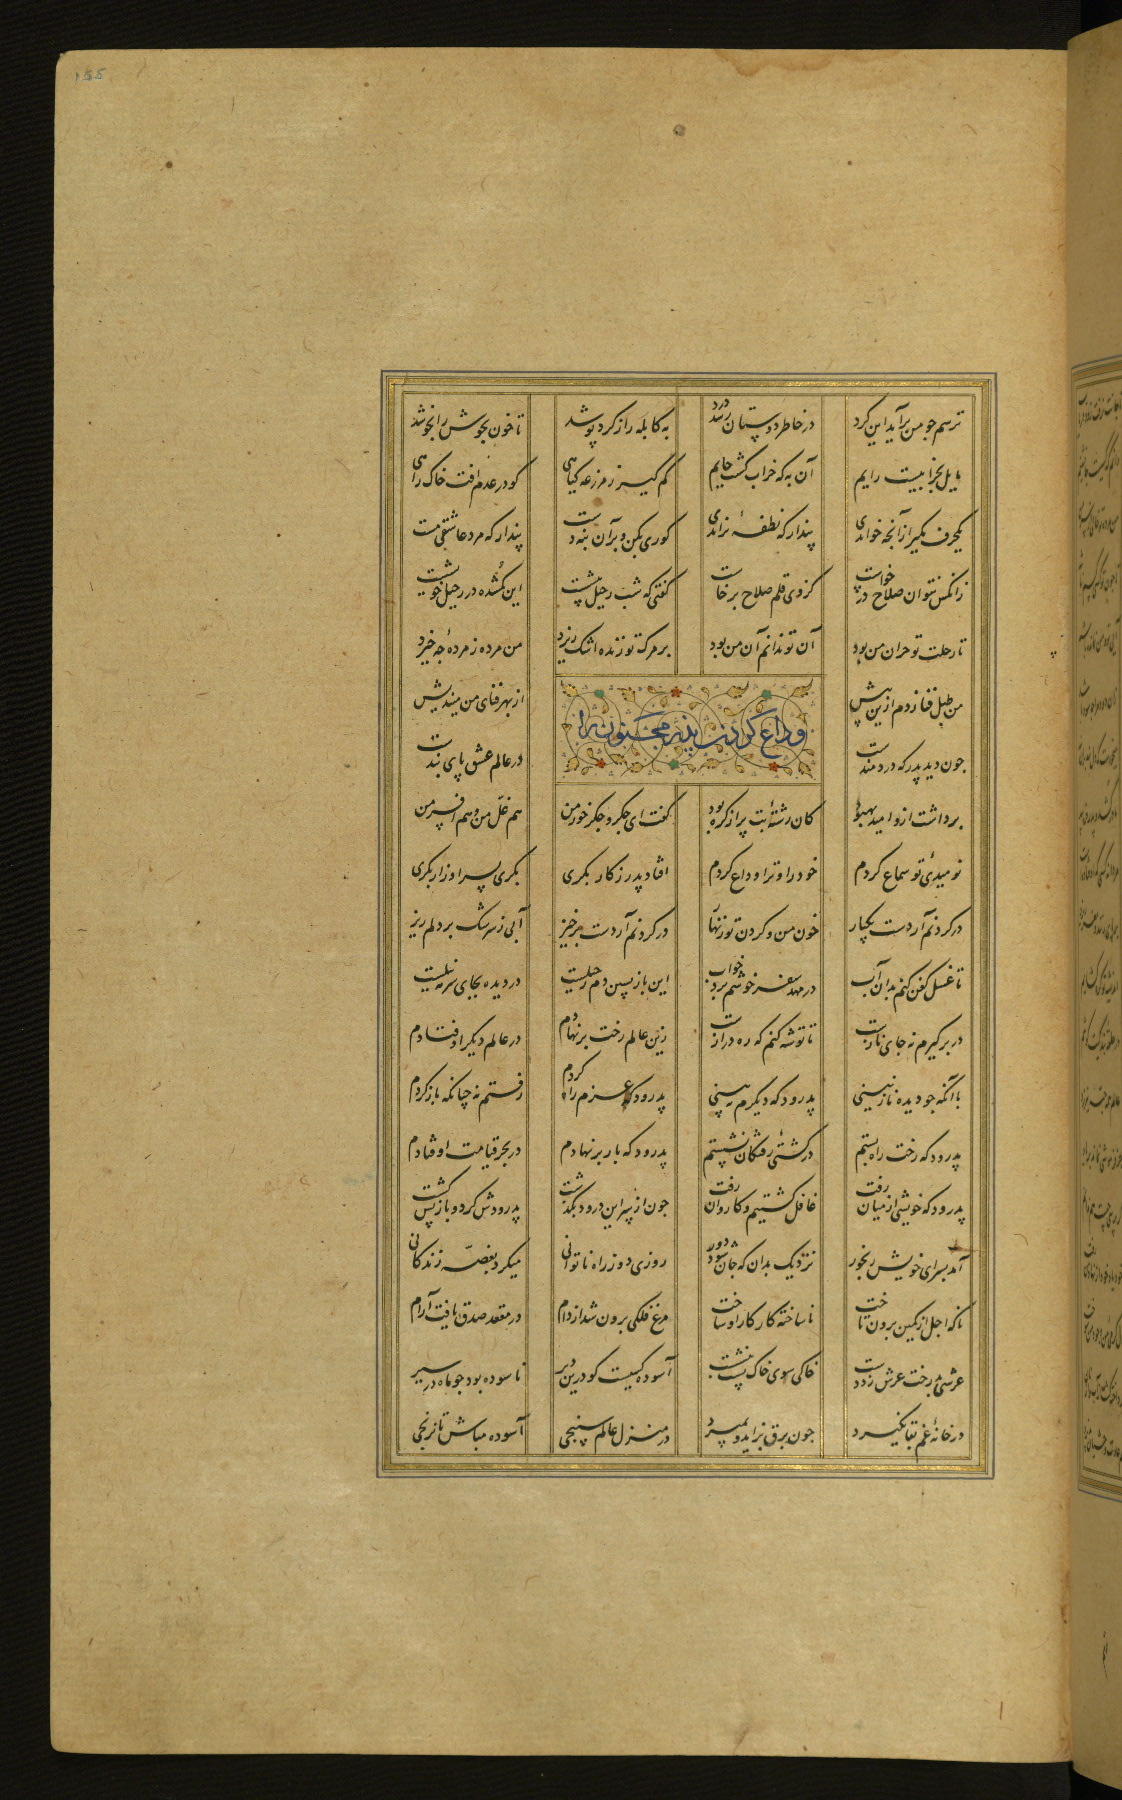 ۱۵۵
ترسم چو من برآید این گرد در خاطر دوستان رسد درد به کابله را ز کرد پوشد تا خون بجوش را نجوشد
مایل بخرابیست رایم آن به که خراب گشت جایم کم گیر ز مزرعه گیاهی گو در عدم افت خاک راهی
یکحرف مگیر از آنچه خواندی پندار که نطفهٔ نراندی گوری بکن و بر آن بنه دست پندار که مرد عاشقی مست
زانکس نتوان صلاح درخواست کز وی قلم صلاح برخاست گفتی که شب رحیل پیشست این گمشده در رحیل خویشست
تا رحلت تو خزان من بود آن تو ندانم آن من بود بر مرگ تو زنده اشک ریزد من مرده ز مردهٔ چه خیزد
من طبل فنا زدم ازین پیش از بهر فنای من میندیش
وداع کردن پدر مجنون را
چون دید پدر که دردمندست در عالم عشق پای بندست
برداشت ازو امید بهبود کان رشته تب پر از گره بود گفت ای جگر و جگر خور من هم غل من و هم افسر من
نومیدی تو سماع کردم خود را و ترا وداع کردم افتاد پدر ز کار بگری بگری پسر او زار بگری
در گردنم آر دست یکبار خون من و گردن تو زنهار در گردنم آر دست برخیز آبی ز سرشک بر دلم ریز
تا غسل کفن کنم بدان آب در مهد سفر خوشم برد خواب این باز پسین دم رحیلست در دیده بجای سرمه نیلست
در برگیرم نه جای نازست تا توشه کنم که ره درازست زین عالم رخت برنهادم در عالم دیگر اوفتادم
با آنکه چو دیده نازنینی پدرود که دیگرم نبینی پدرود که عزم راه کردم رفتم نه چنانکه باز گردم
پدرود که رخت راه بستم در کشتی رفتگان نشستم پدرود که بار برنهادم در بحر قیامت اوفتادم
پدرود که خویشی از میان رفت غافل گشتیم و کاروان رفت چون از سر این درود بگذشت پدرودش کرد و باز پس گشت
آمد بسرای خویش رنجور نزدیک بدان که جان شود دور روزی دو ز راه ناتوانی میکرد بغصه زندگانی
ناگه اجل از کمین برون تاخت ناساخته کار کار او ساخت مرغ فلکی برون شد از دام در مقعد صدق یافت آرام
عرشی برخت عرش زد دست خاکی سوی خاک پست بنشست آسوده کسیست کو درین دیر ناسوده بود چو ماه در سیر
در خانهٔ غم بقا نگیرد چون برق بزاید و بمیرد در منزل عالم سپنجی آسوده مباش تا نرنجی